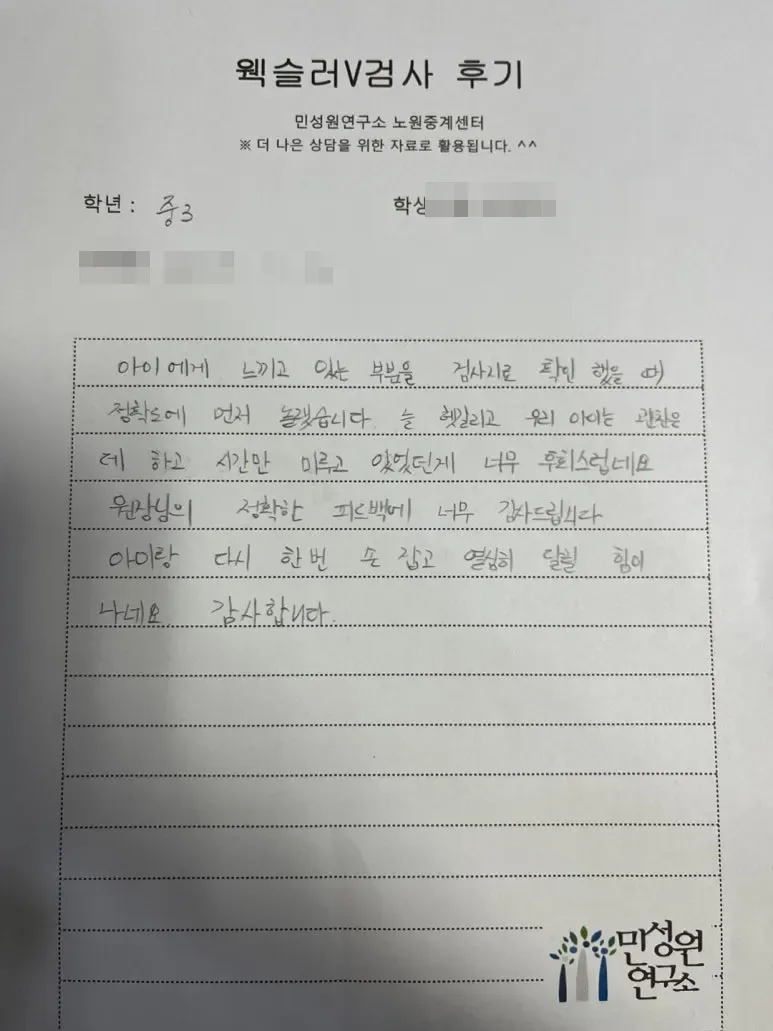 웩슬러V검사 후기
민성원연구소 노원중계센터
※ 더 나은 상담을 위한 자료로 활용됩니다. ^^
학년 : 중3
학생
아이에게 느끼고 있는 부분을 검사지로 확인 했을 때
정확도에 먼저 놀랬습니다. 늘 헷갈리고 우리 아이는 괜찮은
데 하고 시간만 미루고 있었던게 너무 후회스럽네요
원장님의 정확한 피드백에 너무 감사드립니다
아이랑 다시 한번 손 잡고 열심히 달릴 힘이
나네요. 감사합니다.
민성원
연구소